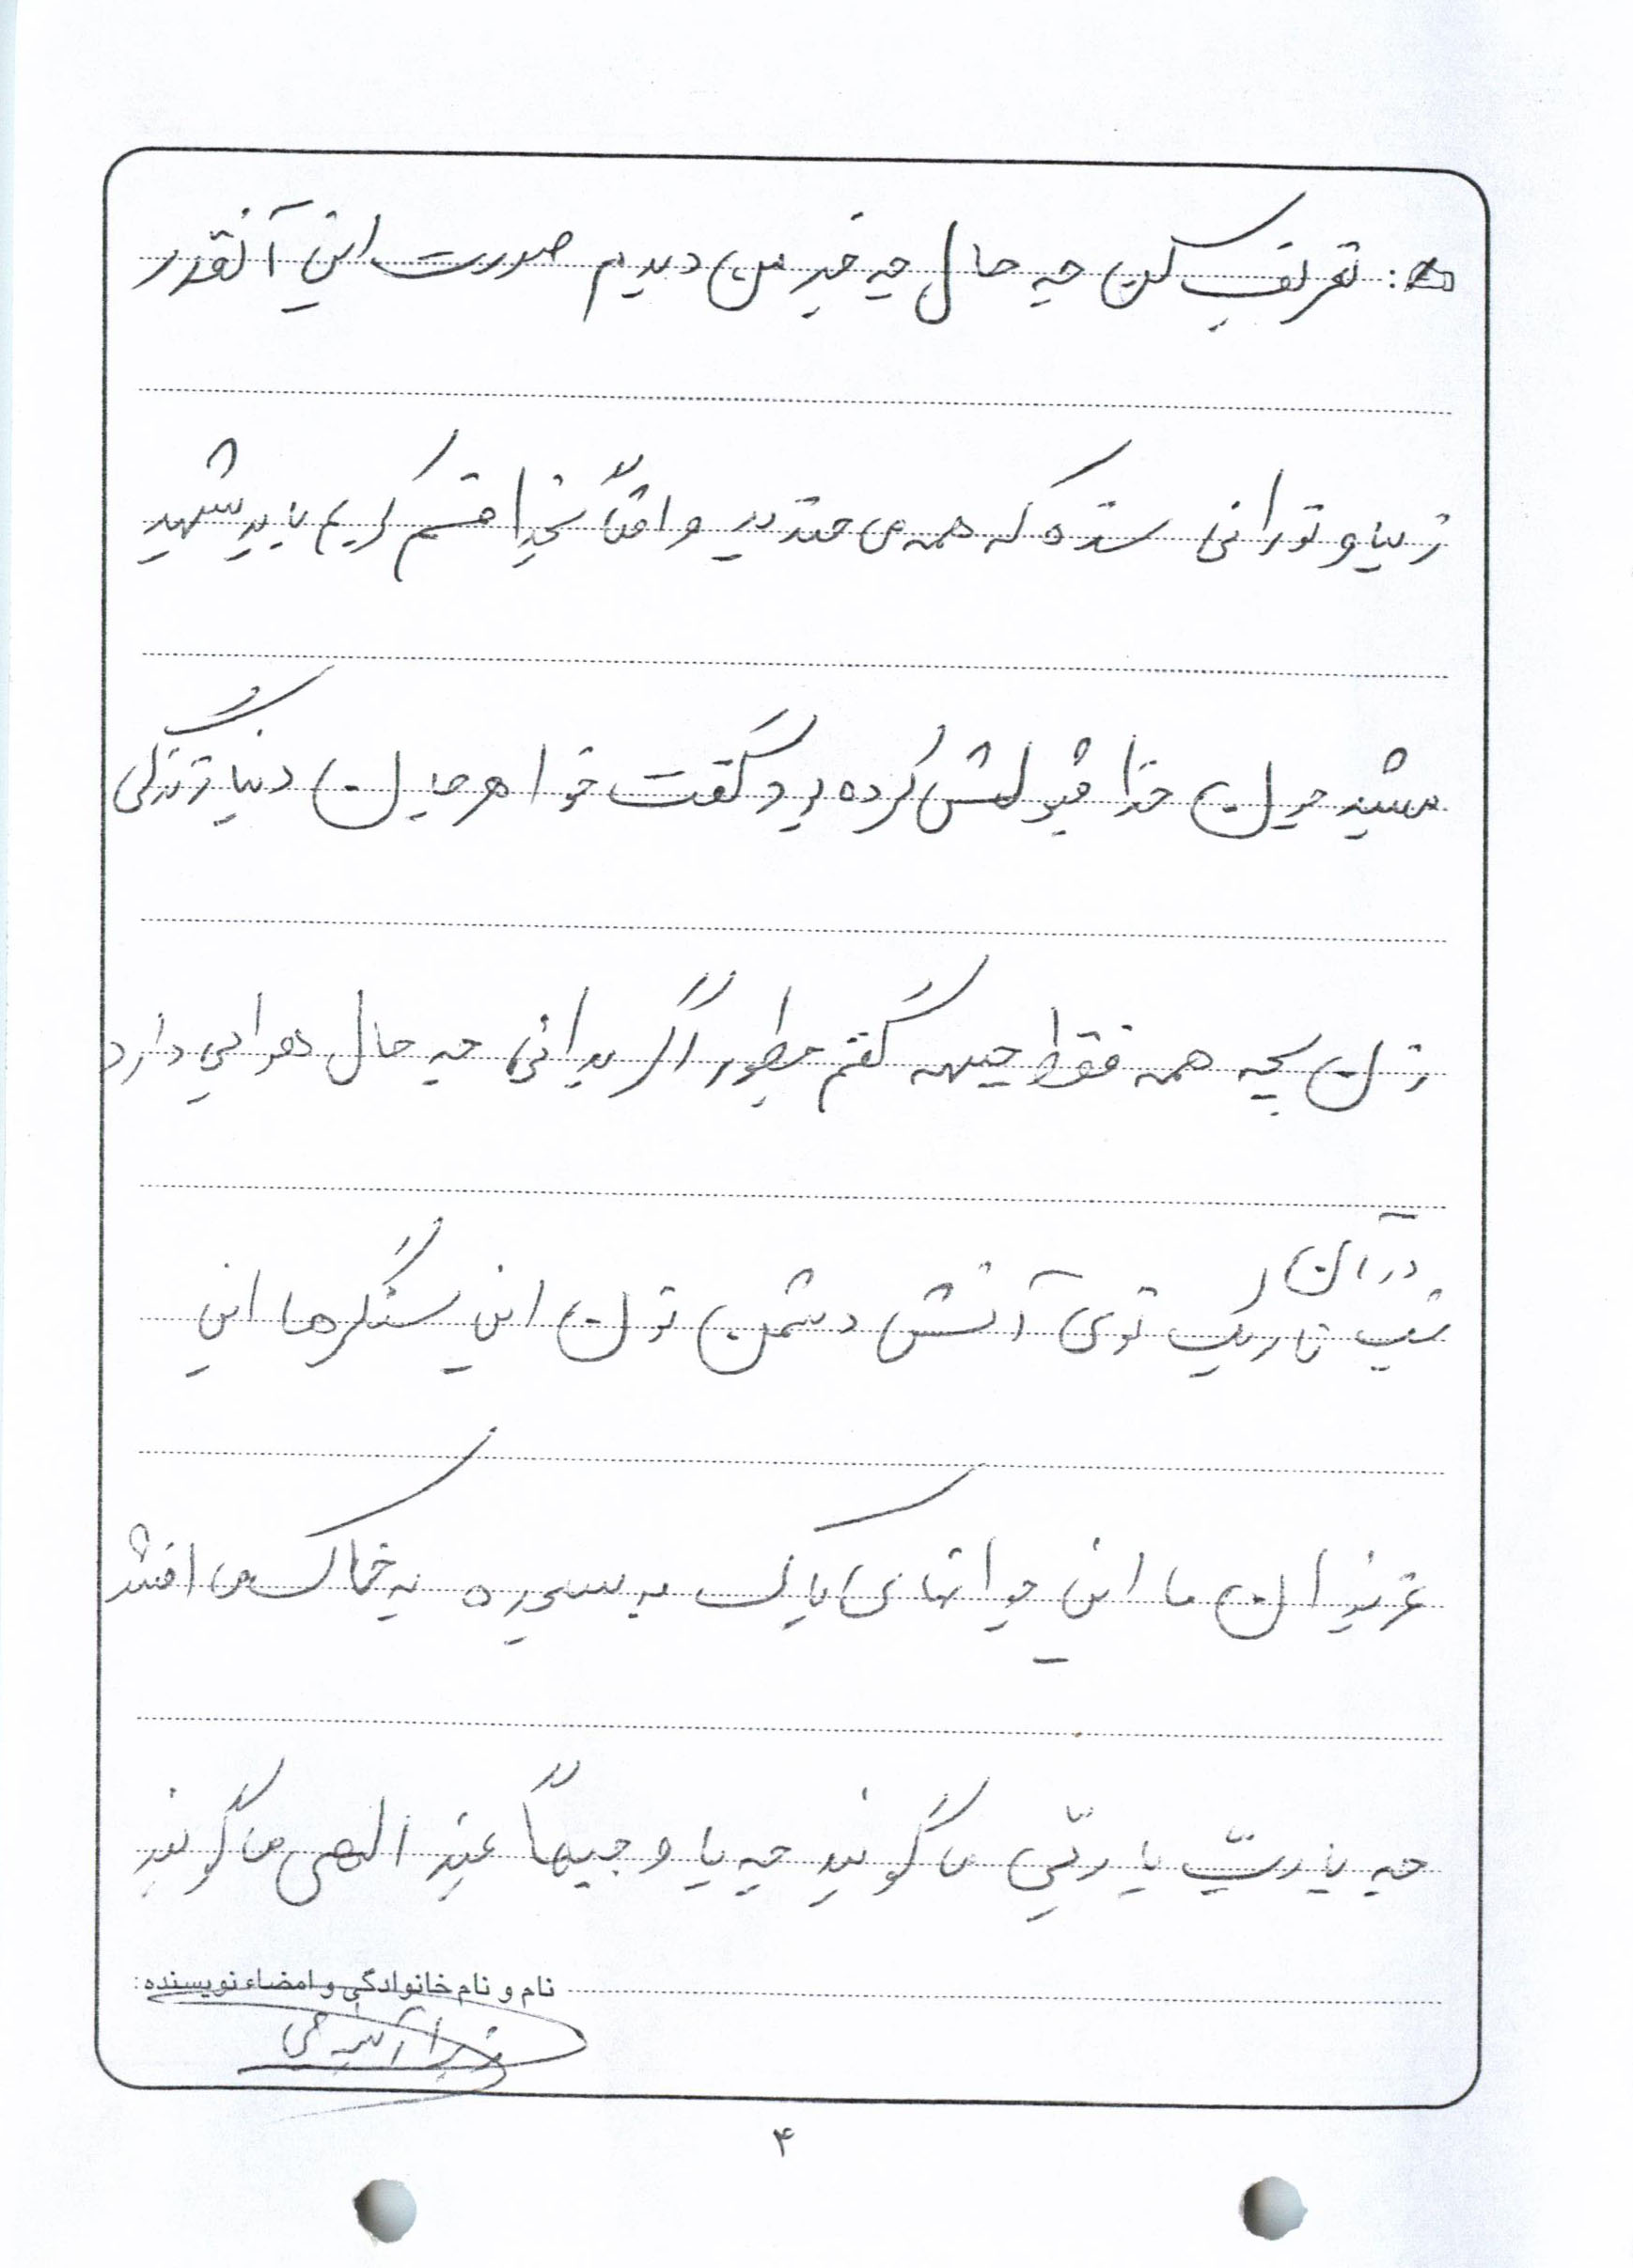 : تعریف کن چه حال چه خبر من دیدم صورت این آنقدر
زیبا و نورانی شده که همه می خندید واقعاً بخدا قسم کریم باید شهید
میشد چون خدا قبولش کرده بود گفت خواهر جان دنیا زندگی
زن بچه همه فقط جبهه گفتم چطور اگر بدانی چه حال هوایی دارد
در آن
شب تاریک توی آتش دشمن توی این سنگرها این
عزیزان ما این جوانهای پاک به سجده به خاک می افتند
چه یا ربّ یا ربّی می گویند چه یا وجیهاً عند الهی می گویند
نام و نام خانوادگی و امضاء نویسنده:
۴